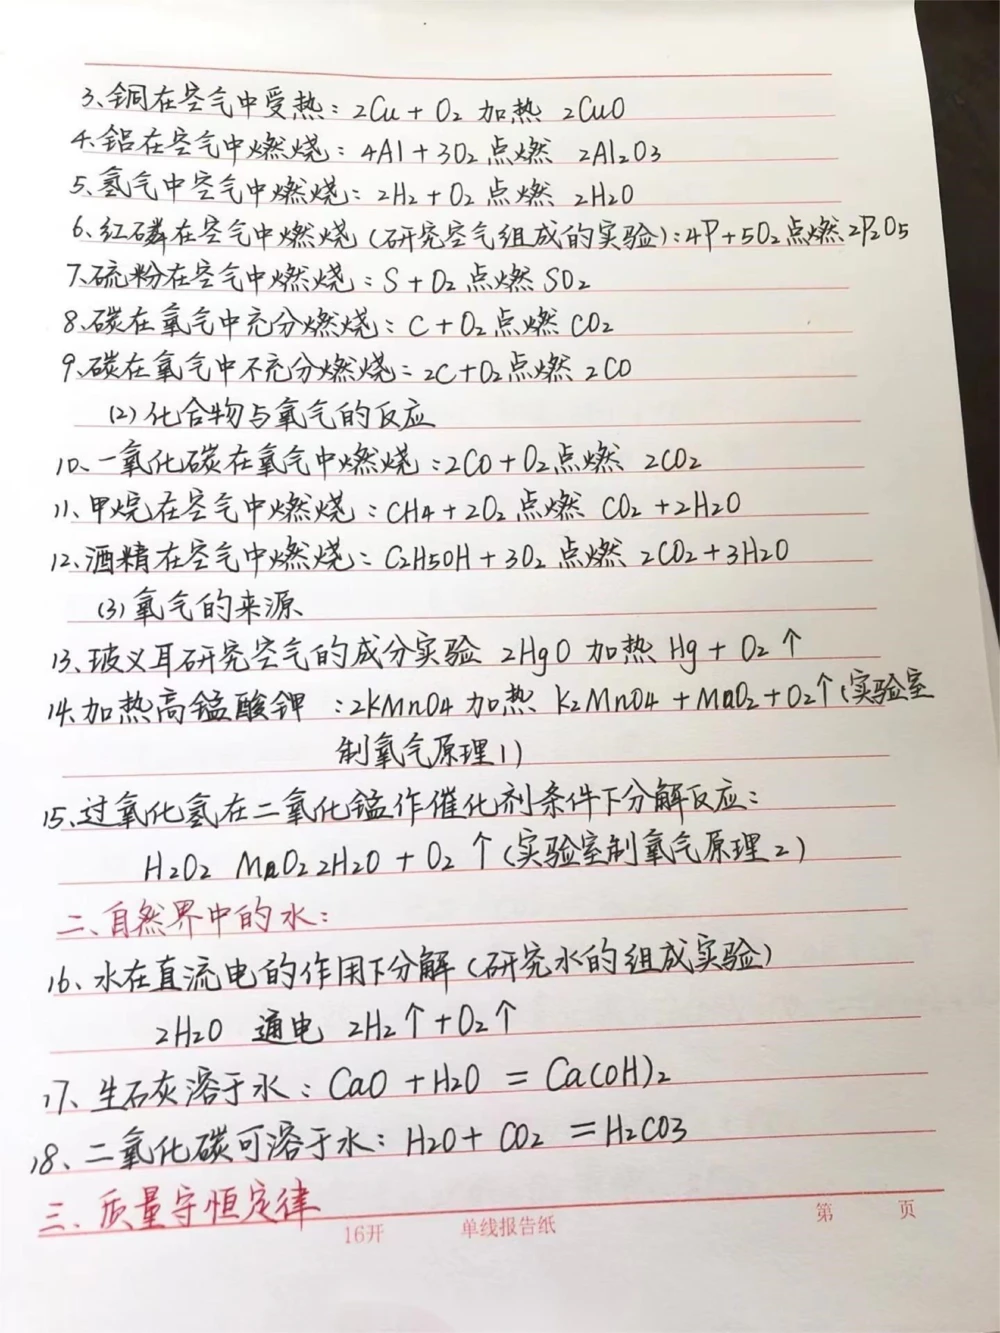 3、铜在空气中受热：2Cu + O2 加热 2CuO
4、铝在空气中燃烧：4Al + 3O2 点燃 2Al2O3
5、氢气中空气中燃烧：2H2 + O2 点燃 2H2O
6、红磷在空气中燃烧（研究空气组成的实验）：4P + 5O2 点燃 2P2O5
7、硫粉在空气中燃烧：S + O2 点燃 SO2
8、碳在氧气中充分燃烧：C + O2 点燃 CO2
9、碳在氧气中不充分燃烧：2C + O2 点燃 2CO
(2) 化合物与氧气的反应
10、一氧化碳在氧气中燃烧：2CO + O2 点燃 2CO2
11、甲烷在空气中燃烧：CH4 + 2O2 点燃 CO2 + 2H2O
12、酒精在空气中燃烧：C2H5OH + 3O2 点燃 2CO2 + 3H2O
(3) 氧气的来源
13、玻义耳研究空气的成分实验 2HgO 加热 Hg + O2 ↑
14、加热高锰酸钾 ：2KMnO4 加热 K2MnO4 + MnO2 + O2↑（实验室
制氧气原理1）
15、过氧化氢在二氧化锰作催化剂条件下分解反应：
H2O2 MnO2 2H2O + O2 ↑（实验室制氧气原理2）
二、自然界中的水：
16、水在直流电的作用下分解（研究水的组成实验）
2H2O 通电 2H2↑ + O2↑
17、生石灰溶于水：CaO + H2O = Ca(OH)2
18、二氧化碳可溶于水：H2O + CO2 = H2CO3
三、质量守恒定律
16开 单线报告纸 第 页